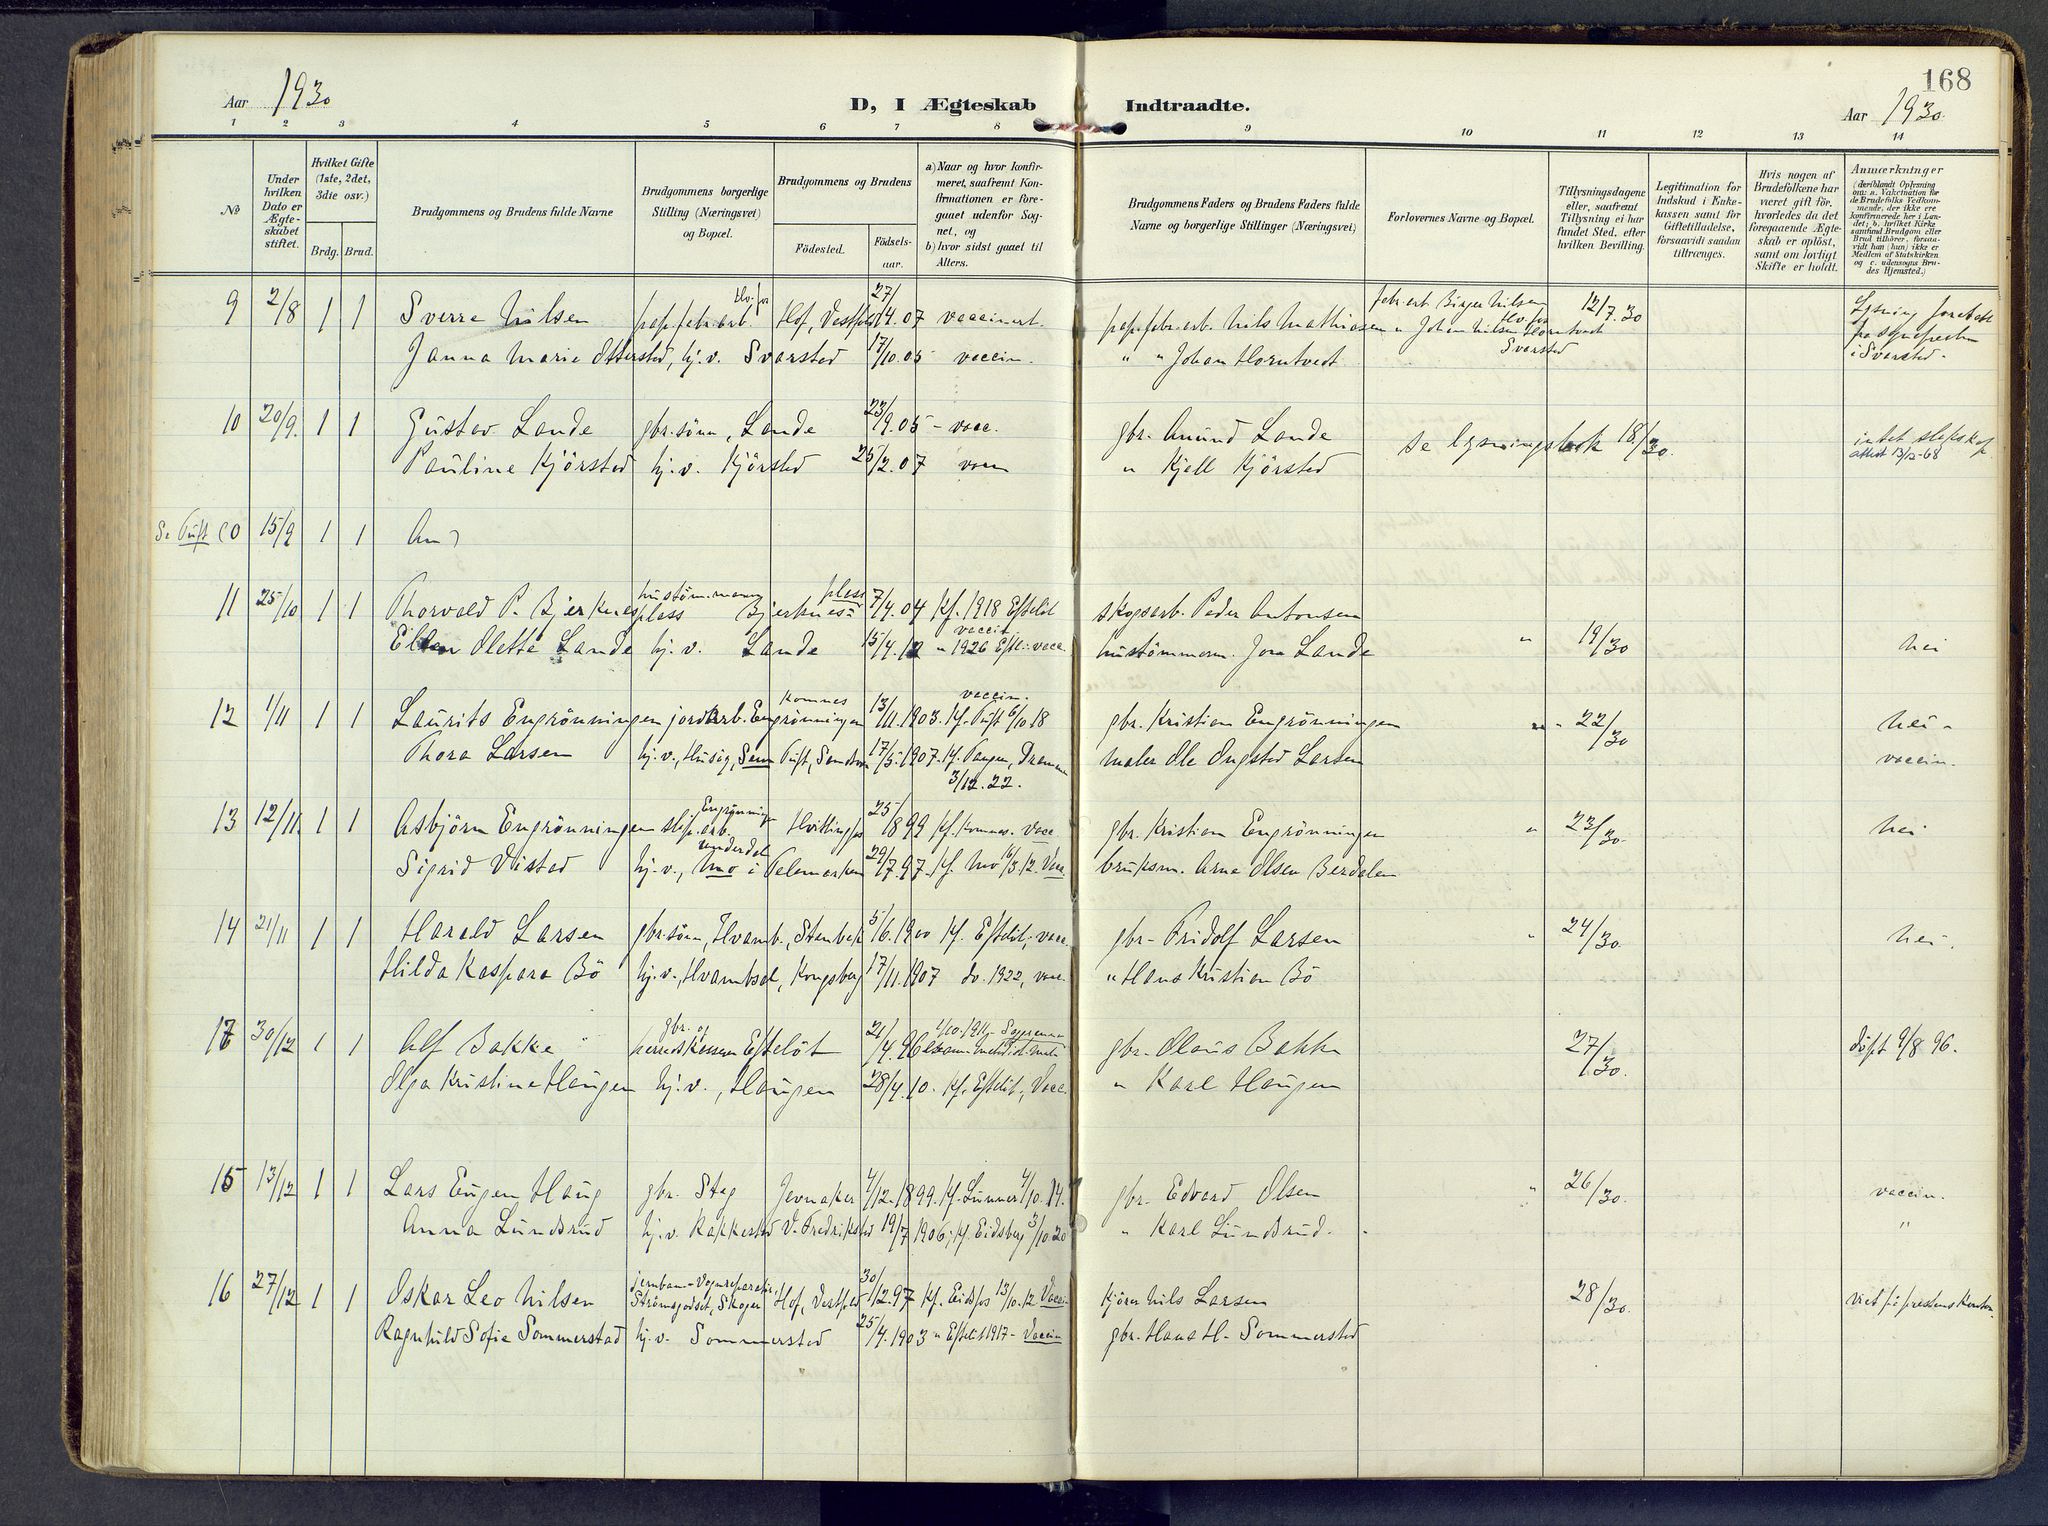 168
Aar 1930
D, I Ægteskab Indtraadte.
Aar 1930.
1 2 3 4 5 6 7 8 9 10 11 12 13 14
No
Under hvilken Dato er Ægteskabet stiftet.
Hvilket Gifte (1ste, 2det, 3die osv.)
Brdg. Brud.
Brudgommens og Brudens fulde Navne
Brudgommens borgerlige Stilling (Næringsvei) og Bopæl.
Brudgommens og Brudens
Fødested.
Fødselsaar.
a) Naar og hvor konfirmeret, saafremt Konfirmationen er foregaaet udenfor Sognet, og
b) hvor sidst gaaet til Alters.
Brudgommens Faders og Brudens Faders fulde Navne og borgerlige Stillinger (Næringsvei)
Forlovernes Navne og Bopæl.
Tillysningsdagene eller, saafremt Tillysning ei har fundet Sted, efter hvilken Bevilling.
Legitimation for Indskud i Enkekassen samt for Giftetilladelse, forsaavidt saadan tiltrænges.
Hvis nogen af Brudefolkene har været gift før, hvorledes da det foregaaende Ægteskab er opløst, samt om lovligt Skifte er holdt.
Anmærkninger
(deriblandt Oplysning om: a. Vakcination for de Brudefolks Vedkommende, der ikke ere konfirmerede her i Landet; b. hvilket Kirkesamfund Brudgom eller Brud tilhører, forsaavidt han (hun) ikke er Medlem af Statskirken og c. udensogns Brudes Hjemsted.)
9 2/8 1 1 Sverre Nilsen pap.fabr.arb. Hof, Vestfold 27/4.07 vaccinert. pap.fabr.arb. Nils Mathiasen fabr.arb. Birger Nilsen 12/7.30
Janna Marie Ottersted, hj.v. Svarstad 17/10.05 vaccin. " " Johan Horntvedt " Johan Nilsen Horntvedt Svarstad i Svarstad.
10 20/9. 1 1 Gustav Lande gbr.sønn, Lande 23/9.05 - vacc. gbr. Amund Lande se lysningsbok 18/30.
Pauline Kjørstad hj.v. Kjørstad 25/2.07 " Kjell Kjørstad attest 13/12-68
Se Tuft (0 15/9 1 1 An)
11 25/10 1 1 Thorvald P. Bjerknesplass hustømmermann Bjerknes plass 7/4.04 Kf. 1918 Efteløt vaccin skogsarb. Peder Antonsen
Ellen Olette Lande hj.v. Lande 15/4.12 " 1926 Eftel. vacc. hustømmerm. Jon Lande " 19/30 nei
12 1/11 1 1 Laurits Engrønningen jordarb. Engrønningen Komnes 13/11.1903. Kf. Tuft 6/10 18 vaccin. gbr. Kristian Engrønningen " 22/30 nei -
Thora Larsen hj.v., Husøy, Sem Tuft, Sandsv. 17/5.1907. Kf. Tangen, Drammen 3/12.22. maler Ole Ongstad Larsen vaccin.
13 12/11. 1 1 Asbjørn Engrønningen slip.arb. Engrønningen Hvittingfos 25/8 99 Kf. Komnes. Vacc. gbr. Kristian Engrønningen " 23/30. nei
Sigrid Vistad hj.v., Mo i Telemarken 29/7.97. Kf. Mo 16/3.12. Vacc. bruksm. Arne Olsen Berdalen
14 21/11 1 1 Harald Larsen gbr.sønn, Hvamb., Stenbek 5/6.1900 Kf. Eftelöt. vacc. gbr. Fridolf Larsen " 24/30. nei.
Hilda Kaspara Bö hj.v., Hvambsal, Kongsberg 17/11.1907 do. 1922, vacc. " Hans Kristian Bö
17 30/12 1 1 Alf Bakke gbr. og herredskasserer Eftelöt 21/4.96 gbr. Olaus Bakke 27/30. döpt 9/8 96.
Olga Kristine Haugen hj.v., Haugen 28/4.10. Kf. Eftelöt, Vacc. " Karl Haugen
15 13/12 1 1 Lars Eugen Haug gbr. Steg Jevnaker 4/12.1899. Kf. Lunner 4/10.14. gbr. Edvard Olsen " 26/30. vaccin.
Anna Lundsrud hj.v. Rakkestad V. Fredrikstad 19/7 1906, Kf. Eidsberg 3/10 20 " Karl Lundsrud. "
16 27/12 1 1 Oskar Leo Nilsen jernban-Vognreparatör, Strömsgodset, Skoger Hof, Vestfold 30/12.97 Kf. Eidsfos 13/10.12 Vacci. kjører Nils Larsen 28/30. viet på prestens kontor.
Ragnhild Sofie Sommerstad hj.v. Sommerstad 25/4.1903 " Eftelöt 1917 - Vaccin gbr. Hans H. Sommerstad